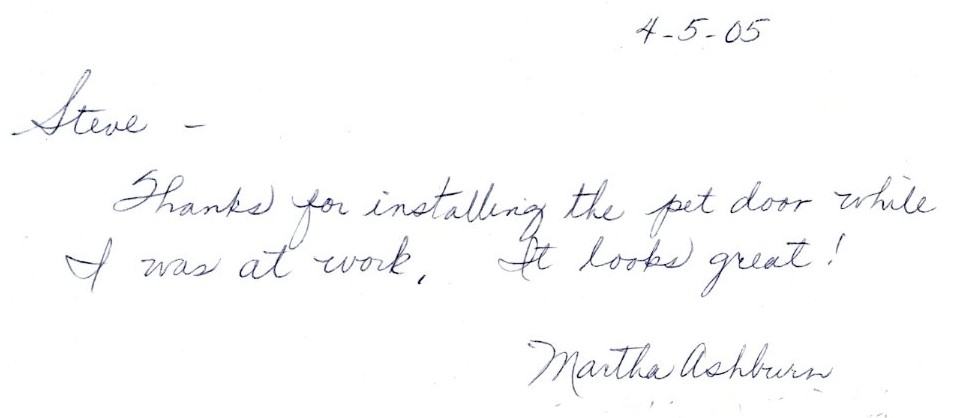 4-5-05
Steve -
Thanks for installing the pet door while
I was at work. It looks great!
Martha Ashburn